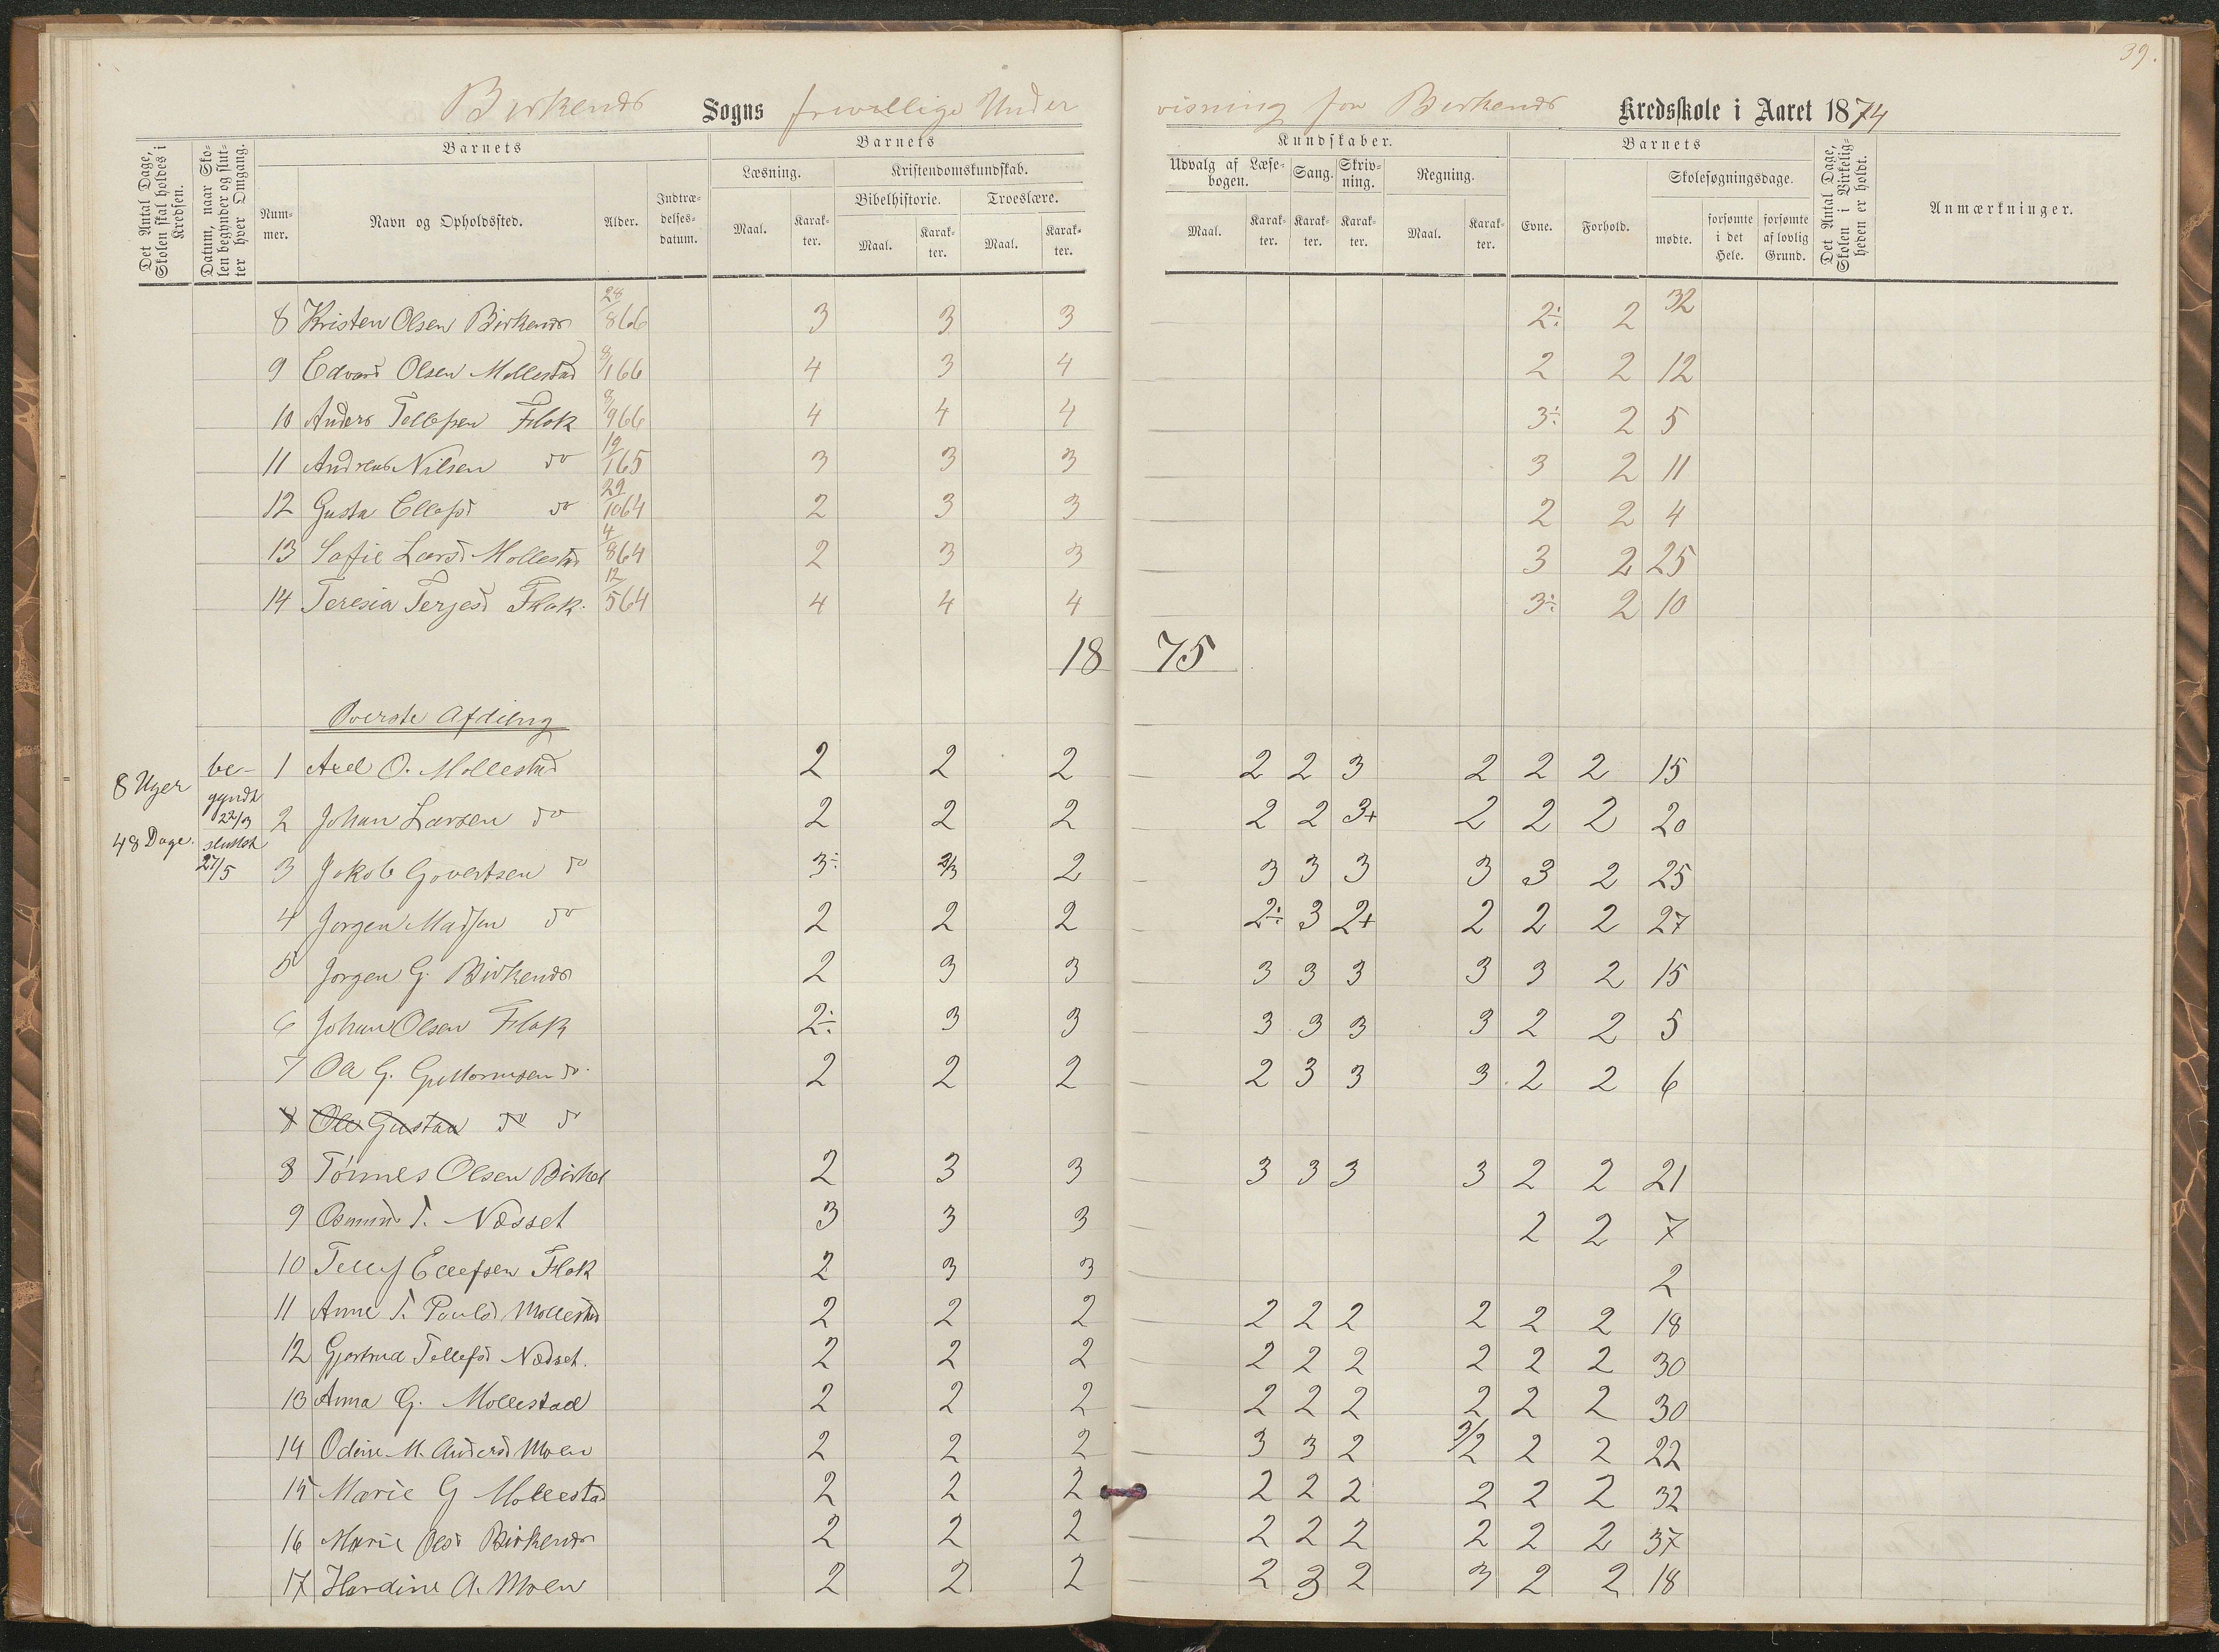 39.
Birkenæs Sogns frivillige Under visning for Birkenæs Kredsskole i Aaret 1874
Det Antal Dage, Skolen skal holdes i Kredsen.
Datum, naar Skolen begynder og slutter hver Omgang.
Barnets
Barnets
Kundskaber.
Barnets
Det Antal Dage, Skolen i Virkeligheden er holdt.
Anmærkninger.
Nummer. Navn og Opholdssted. Alder. Indtrædelsesdatum.
Læsning. Kristendomskundskab. Udvalg af Læsebogen. Sang. Skrivning. Regning. Evne. Forhold. Skolesøgningsdage.
Bibelhistorie. Troeslære.
Maal. Karakter. Maal. Karakter. Maal. Karakter. Maal. Karakter. Karakter. Karakter. Maal. Karakter. mødte. forsømte i det Hele. forsømte af lovlig Grund.
8 Kristen Olsen Birkenæs 28/8 66 3 3 3 2÷ 2 32
9 Edvard Olsen Mollestad 8/1 66 4 3 4 2 2 12
10 Anders Tellefsen Flak 8/9 66 4 4 4 3÷ 2 5
11 Andreas Nilsen do 19/1 65 3 3 3 3 2 11
12 Gusta Ellefsd do 29/10 64 2 3 3 2 2 4
13 Saffie Larsd Mollestad 4/8 64 2 3 3 3 2 25
14 Teresia Terjesd Flak. 12/5 64 4 4 4 3÷ 2 10
18 75
Øverste Afdeling
8 Uger
48 Dage.
begyndt 22/3
sluttet 27/5
1 Axel O. Mollestad 2 2 2 2 2 3 2 2 2 15
2 Johan Larsen do 2 2 2 2 2 3+ 2 2 2 20
3 Jakob Govertsen do 3÷ 2/3 2 3 3 3 3 3 2 25
4 Jørgen Madsen do 2 2 2 2÷ 3 2+ 2 2 2 27
5 Jørgen G. Birkenæs 2 3 3 3 3 3 3 3 2 15
6 Johan Olsen Flak 2÷ 3 3 3 3 3 3 2 2 5
7 Ole G. Guttormsen do. 2 2 2 2 3 3 3 2 2 6
8 Ole Gustav do do
8 Tønnes Olsen 2 3 3 3 3 3 3 2 2 21
9 Osmund T. Næsset 3 3 3 2 2 7
10 Tellef Ellefsen Flak 2 3 3 2
11 Anne T. Poulsd Mollestad 2 2 2 2 2 2 2 2 2 18
12 Gjertrud Tellefsd Næsset. 2 2 2 2 2 2 2 2 2 30
13 Anna G. Mollestad 2 2 2 2 2 2 2 2 2 30
14 Odine M. Andersd Moen 2 2 2 3 3 2 3/2 2 2 22
15 Marie G Mollestad 2 2 2 2 2 2 2 2 2 32
16 Marie Olsd Birkenæs 2 2 2 2 2 2 2 2 2 37
17 Hardine A. Moen 2 2 2 2 3 2 3 2 2 18